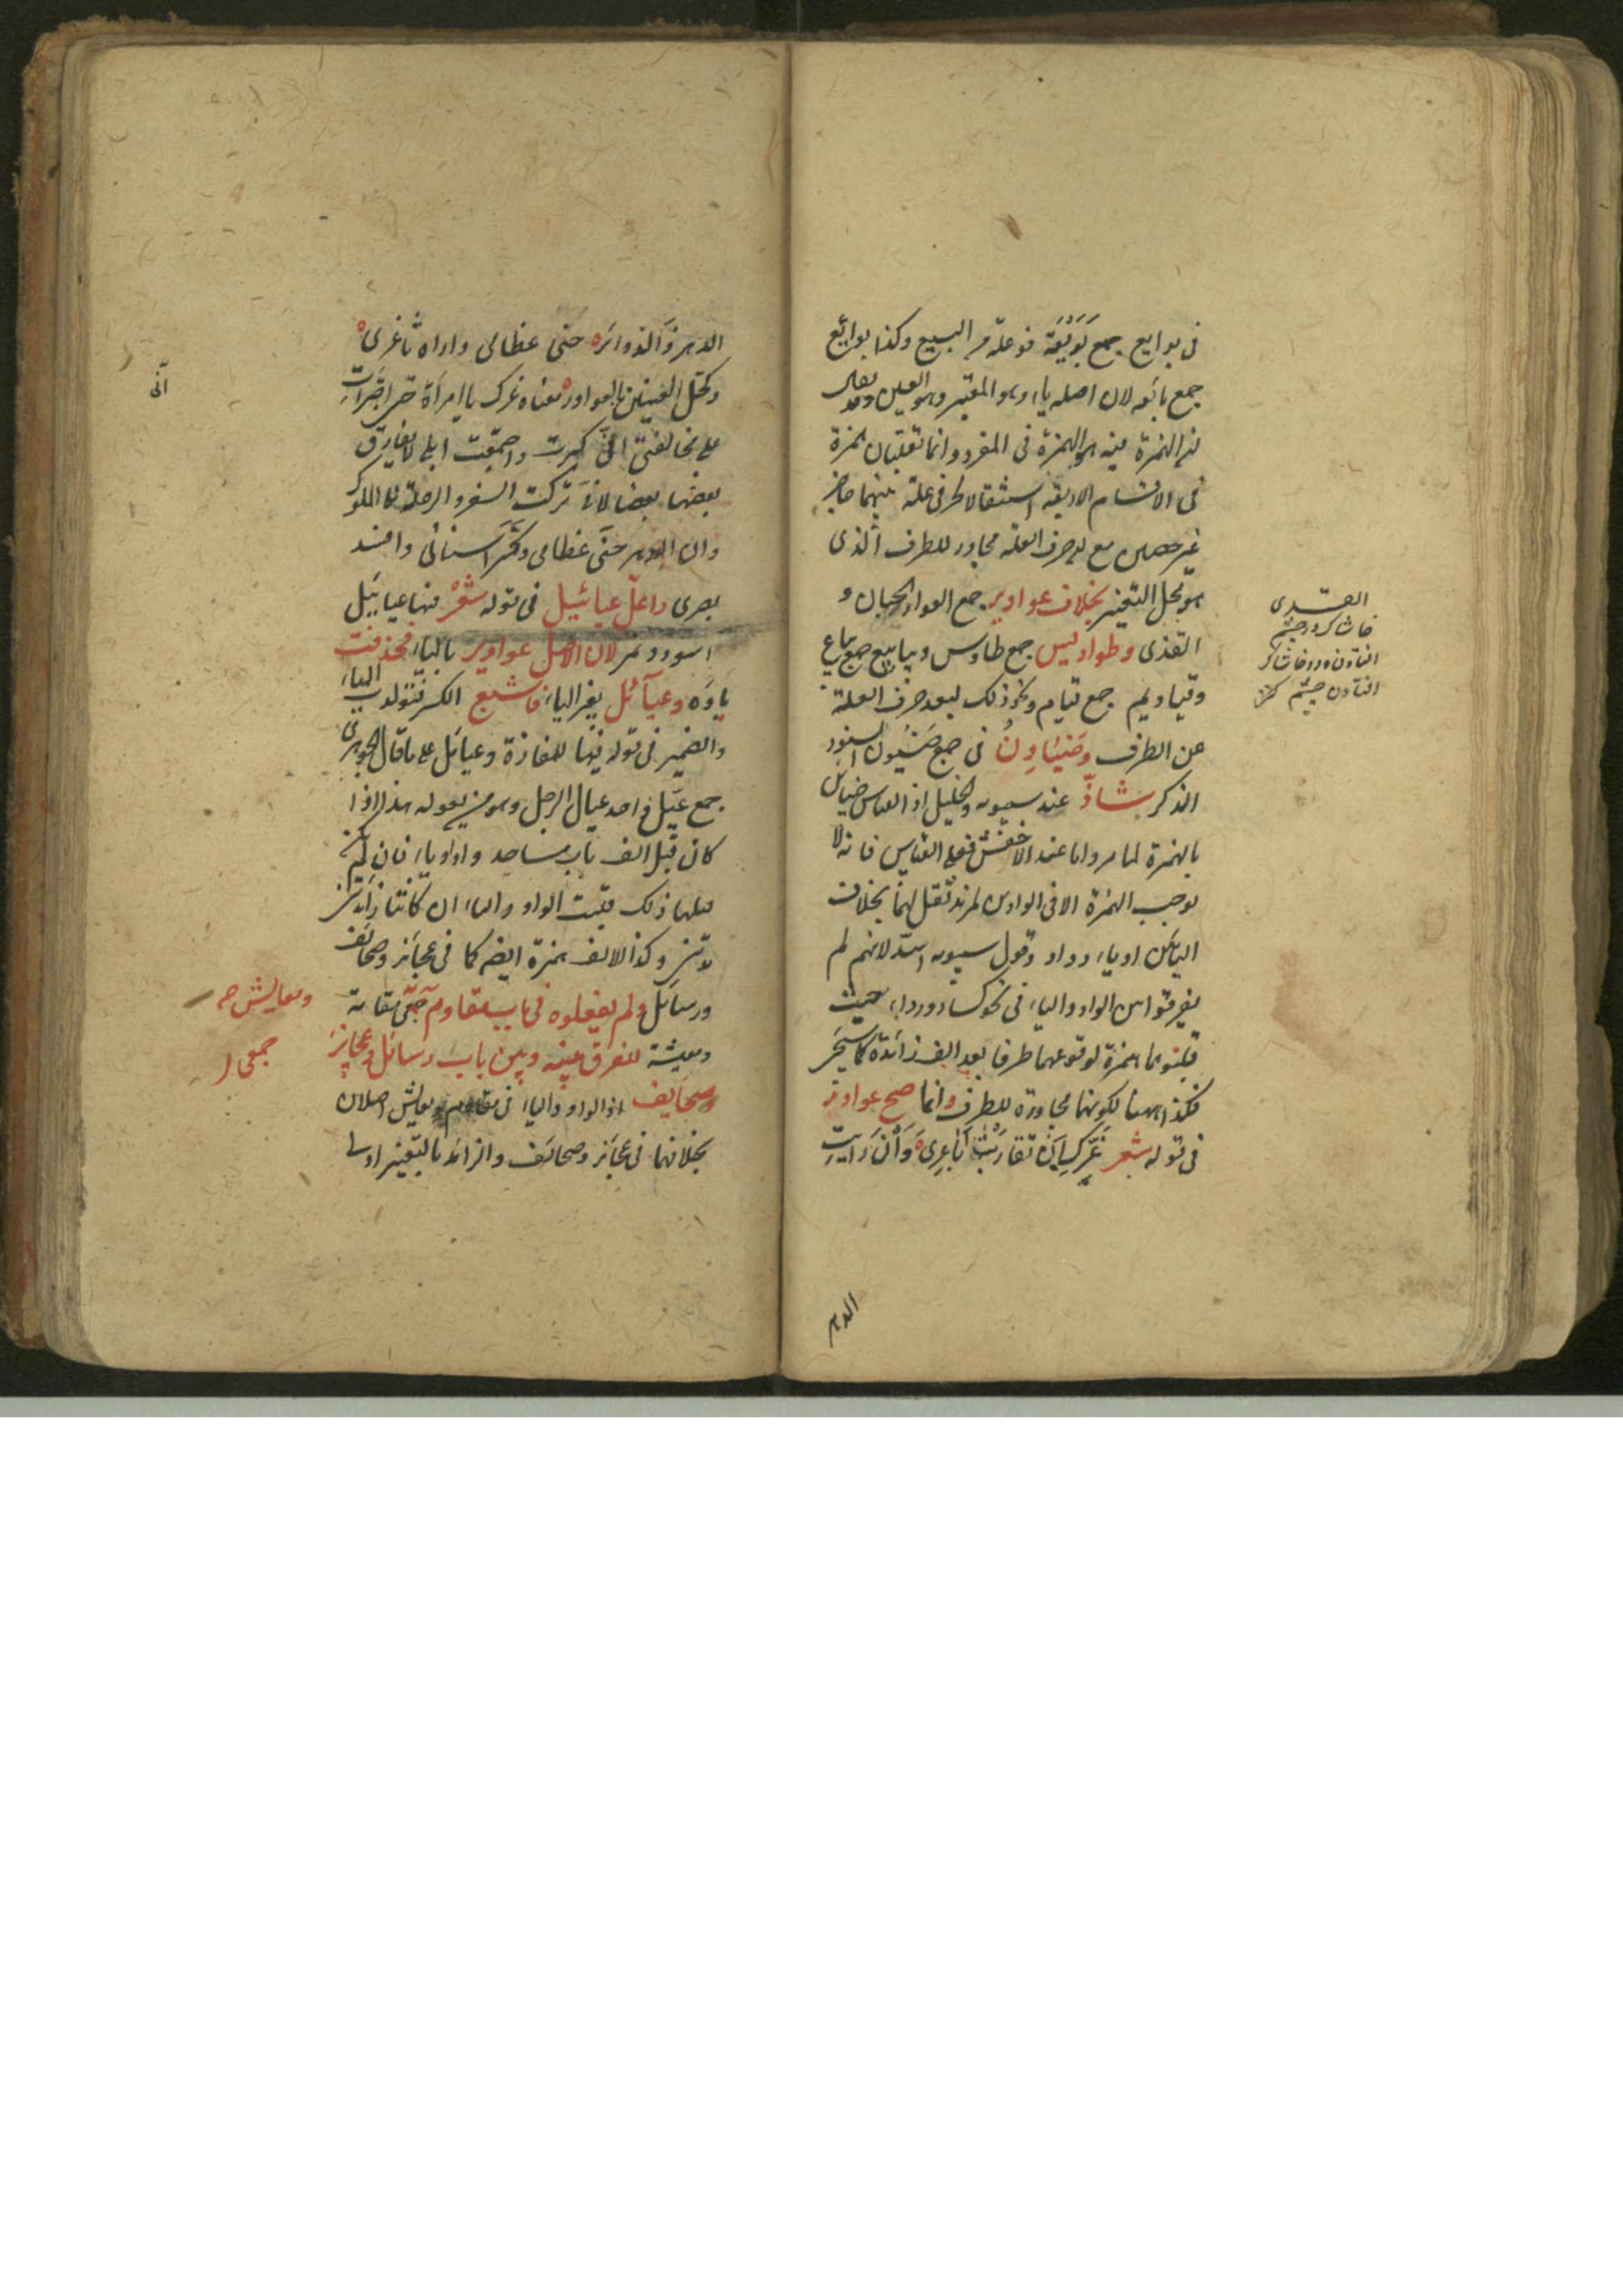 فى بوايع جمع بَوْيَعَة فوعلة من البيع وكذا بوايع
جمع بائعه لان اصله ياء وهو المعتبر وهو العين وقد يقال
الهمزة فيه هو الهمزة فى المفرد وانما تقلبان همزة
فى الاقسام الاربعة استثقالا لحرفى علة بينهما حاجز
غير حصين مع ان حرف العلة مجاور للطرف الذى
هو محل التغيير بخلاف عواوير جمع العوار الجبان و
القذى وطواويس جمع طاوس وبياييع جمع بياع
وقياويم جمع قيام ونحو ذلك لبعد حرف العلة
عن الطرف وضَيَاوِنُ فى جمع ضَيْوَن السنور
الذكر شاذّ عند سيبويه والخليل اذ القياس ضيائن
بالهمزة لما مر واما عند الاخفش فعلى القياس فانه لا
يوجب الهمزة الا فى الواوين لمزيد ثقلهما بخلاف
اليائين او ياء وواو وقول سيبويه اسدّ لانهم لم
يفرقوا بين الواو والياء فى نحو كساء ورداء حيث
قلبوهما همزة لوقوعهما طرفا بعد الف زائدة كما سيجئ
فكذا ههنا لكونهما مجاورة للطرف وانما صح عواور
فى قوله شعر غَرَّكِ اَنْ تقارَبَتْ اَبَاعِرِى وَاَنْ رَايتِ
الدهر
القذى
خاشاك در چشم
افتادن
افتادن چشم
الدهر ذَا الدوائر حنى عظامى واراه ثاغرى
وكحل العينين بالعواور معناه غرك يا امراة حتى اجترات
على مخالفتى انى كبرت واجتمعت ابلى لا يفارق
بعضها بعضا لانى تركت السفر والرحلة الى الملوك
وان الدهر حنى عظامى وكسر اسنانى وافسد
بصرى واعلّ عيائيل فى قوله شعر فيها عيائيل
اسود ونمر لان الاصل عواوير بالياء فحذفت الياء
ياؤه وعيائل بغير الياء فاشبع الكسر فتولدت
والضمير فى قوله فيها للمفازة وعيائل على ما قال الجوهرى
جمع عيّل واحد عيال الرجل وهو من يعوله هذا اذا
كان قبل الف باب مساجد واو او ياء فان لم يكن
قبلها ذلك قلبت الواو والياء ان كانتا زائدتين
وكذا الالف همزة ايضا كما فى عجائز وصحائف
ورسائل ولم يفعلوه فى باب مقاوم جمعى مقامة
ومعيشة للفرق بينه وبين باب رسائل وعجائز
وصحايف اذ الواو والياء فى مقاوم ومعايش اصلان
بخلافهما فى عجائز وصحائف والزائد بالتغيير اولى
ومعايش صح
جمعى